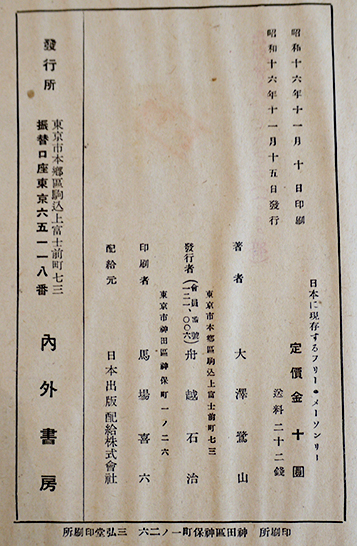 昭和十六年十一月 十日印刷
昭和十六年十一月十五日發行
日本に現存するフリー・メーソンリー
定價金十圓
送料二十二錢
著者 大澤鷺山
東京市本鄕區駒込上富士前町七三
發行者 (會員番號一二一、〇〇六) 舟越石治
東京市神田區神保町一ノ二六
印刷者 馬場喜六
配給元 日本出版配給株式會社
發行所
東京市本鄕區駒込上富士前町七三
振替口座東京六五一一八番
內外書房
印刷所 神田區神保町一ノ二六 三弘堂印刷所